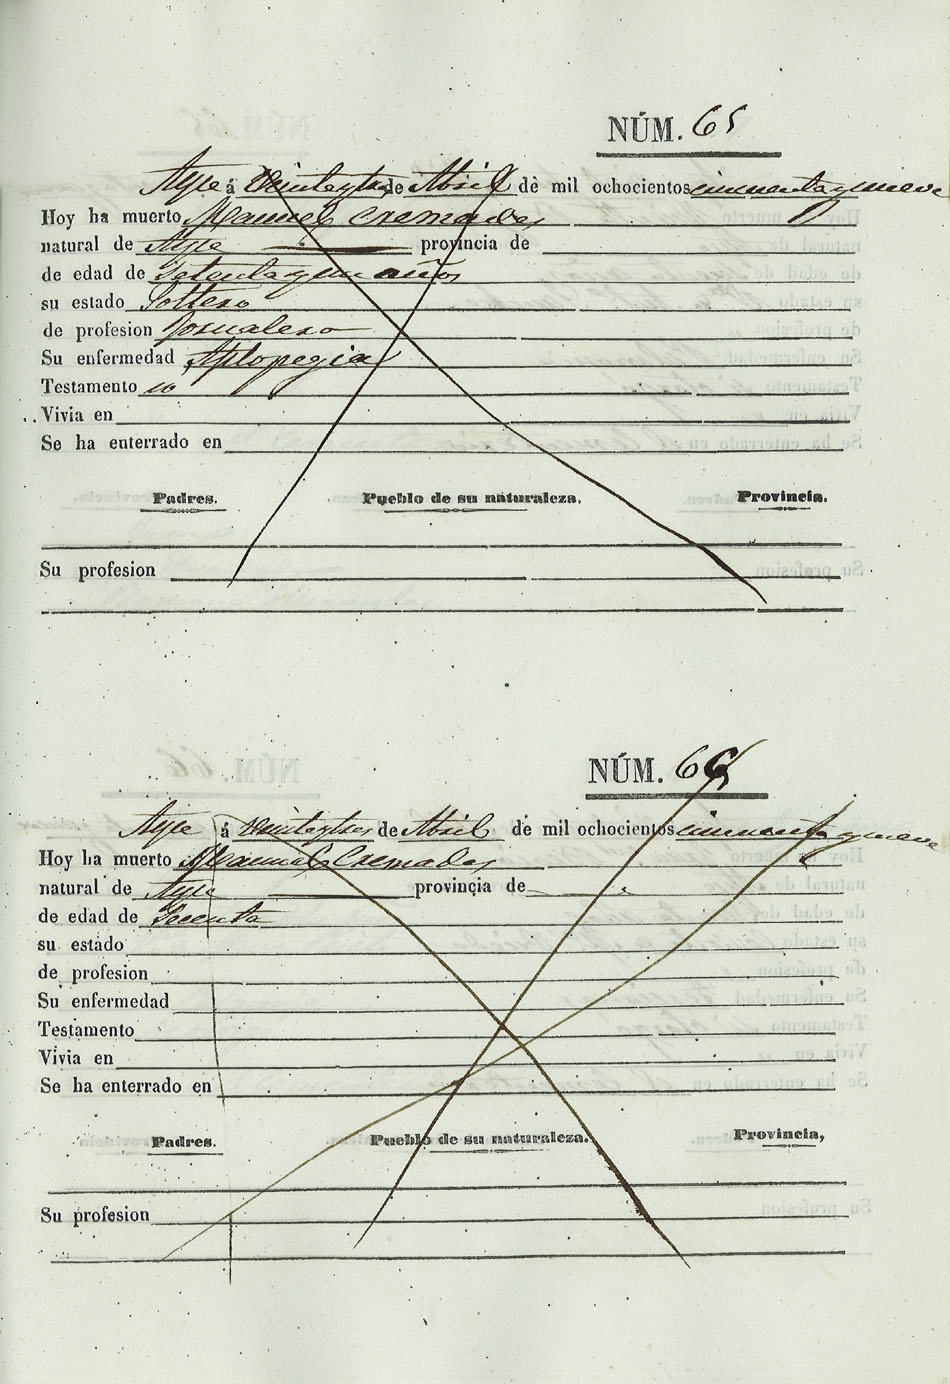 NÚM. 65
Aspe á Veinteytres de Abril de mil ochocientos cincuentaynueve
Hoy ha muerto Manuel Cremades
natural de Aspe provincia de
de edad de Setentayun años
su estado Soltero
de profesion Jornalero
Su enfermedad Aplopegia
Testamento no
Vivia en
Se ha enterrado en
Padres. Pueblo de su naturaleza. Provincia.
Su profesion
NÚM. 66
Aspe á Veinteytres de Abril de mil ochocientos cincuentaynueve
Hoy ha muerto Manuel Cremades
natural de Aspe provincia de
de edad de
su estado
de profesion
Su enfermedad
Testamento
Vivia en
Se ha enterrado en
Padres. Pueblo de su naturaleza. Provincia,
Su profesion